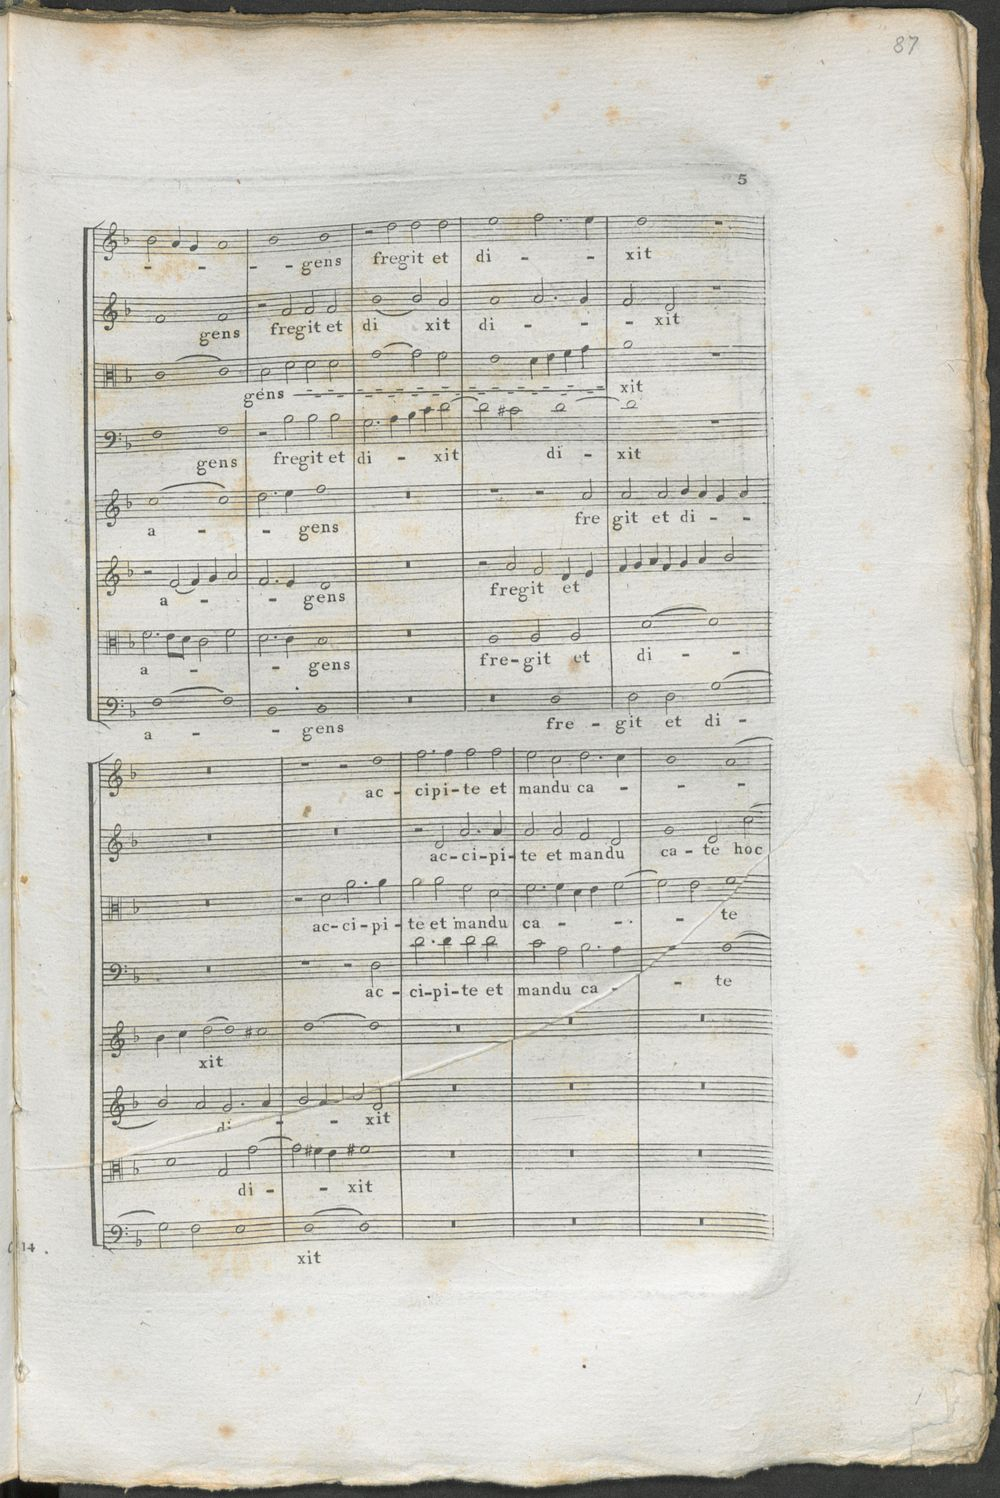 87
5
- - - - gens fregit et di - - xit
gens fregit et di xit di - - - xit
gens - - - - - - - - - - - - - - - xit
gens fregit et di - xit di - xit
a - - gens fre git et di - -
a - - gens fregit et
a - - gens fre-git et di - -
a - - gens fre - git et di -
ac - cipi-te et mandu ca - - -
ac-ci-pi-te et mandu ca - te hoc
ac-ci-pi-te et mandu ca - - - te
ac - ci-pi-te et mandu ca - - te
xit
di - - xit
di - - xit
14.
xit